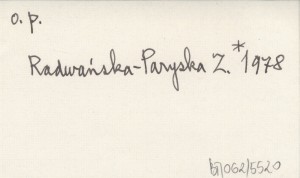 o. p.
Radwańska-Paryska Z. *1978
BJ/062/5520